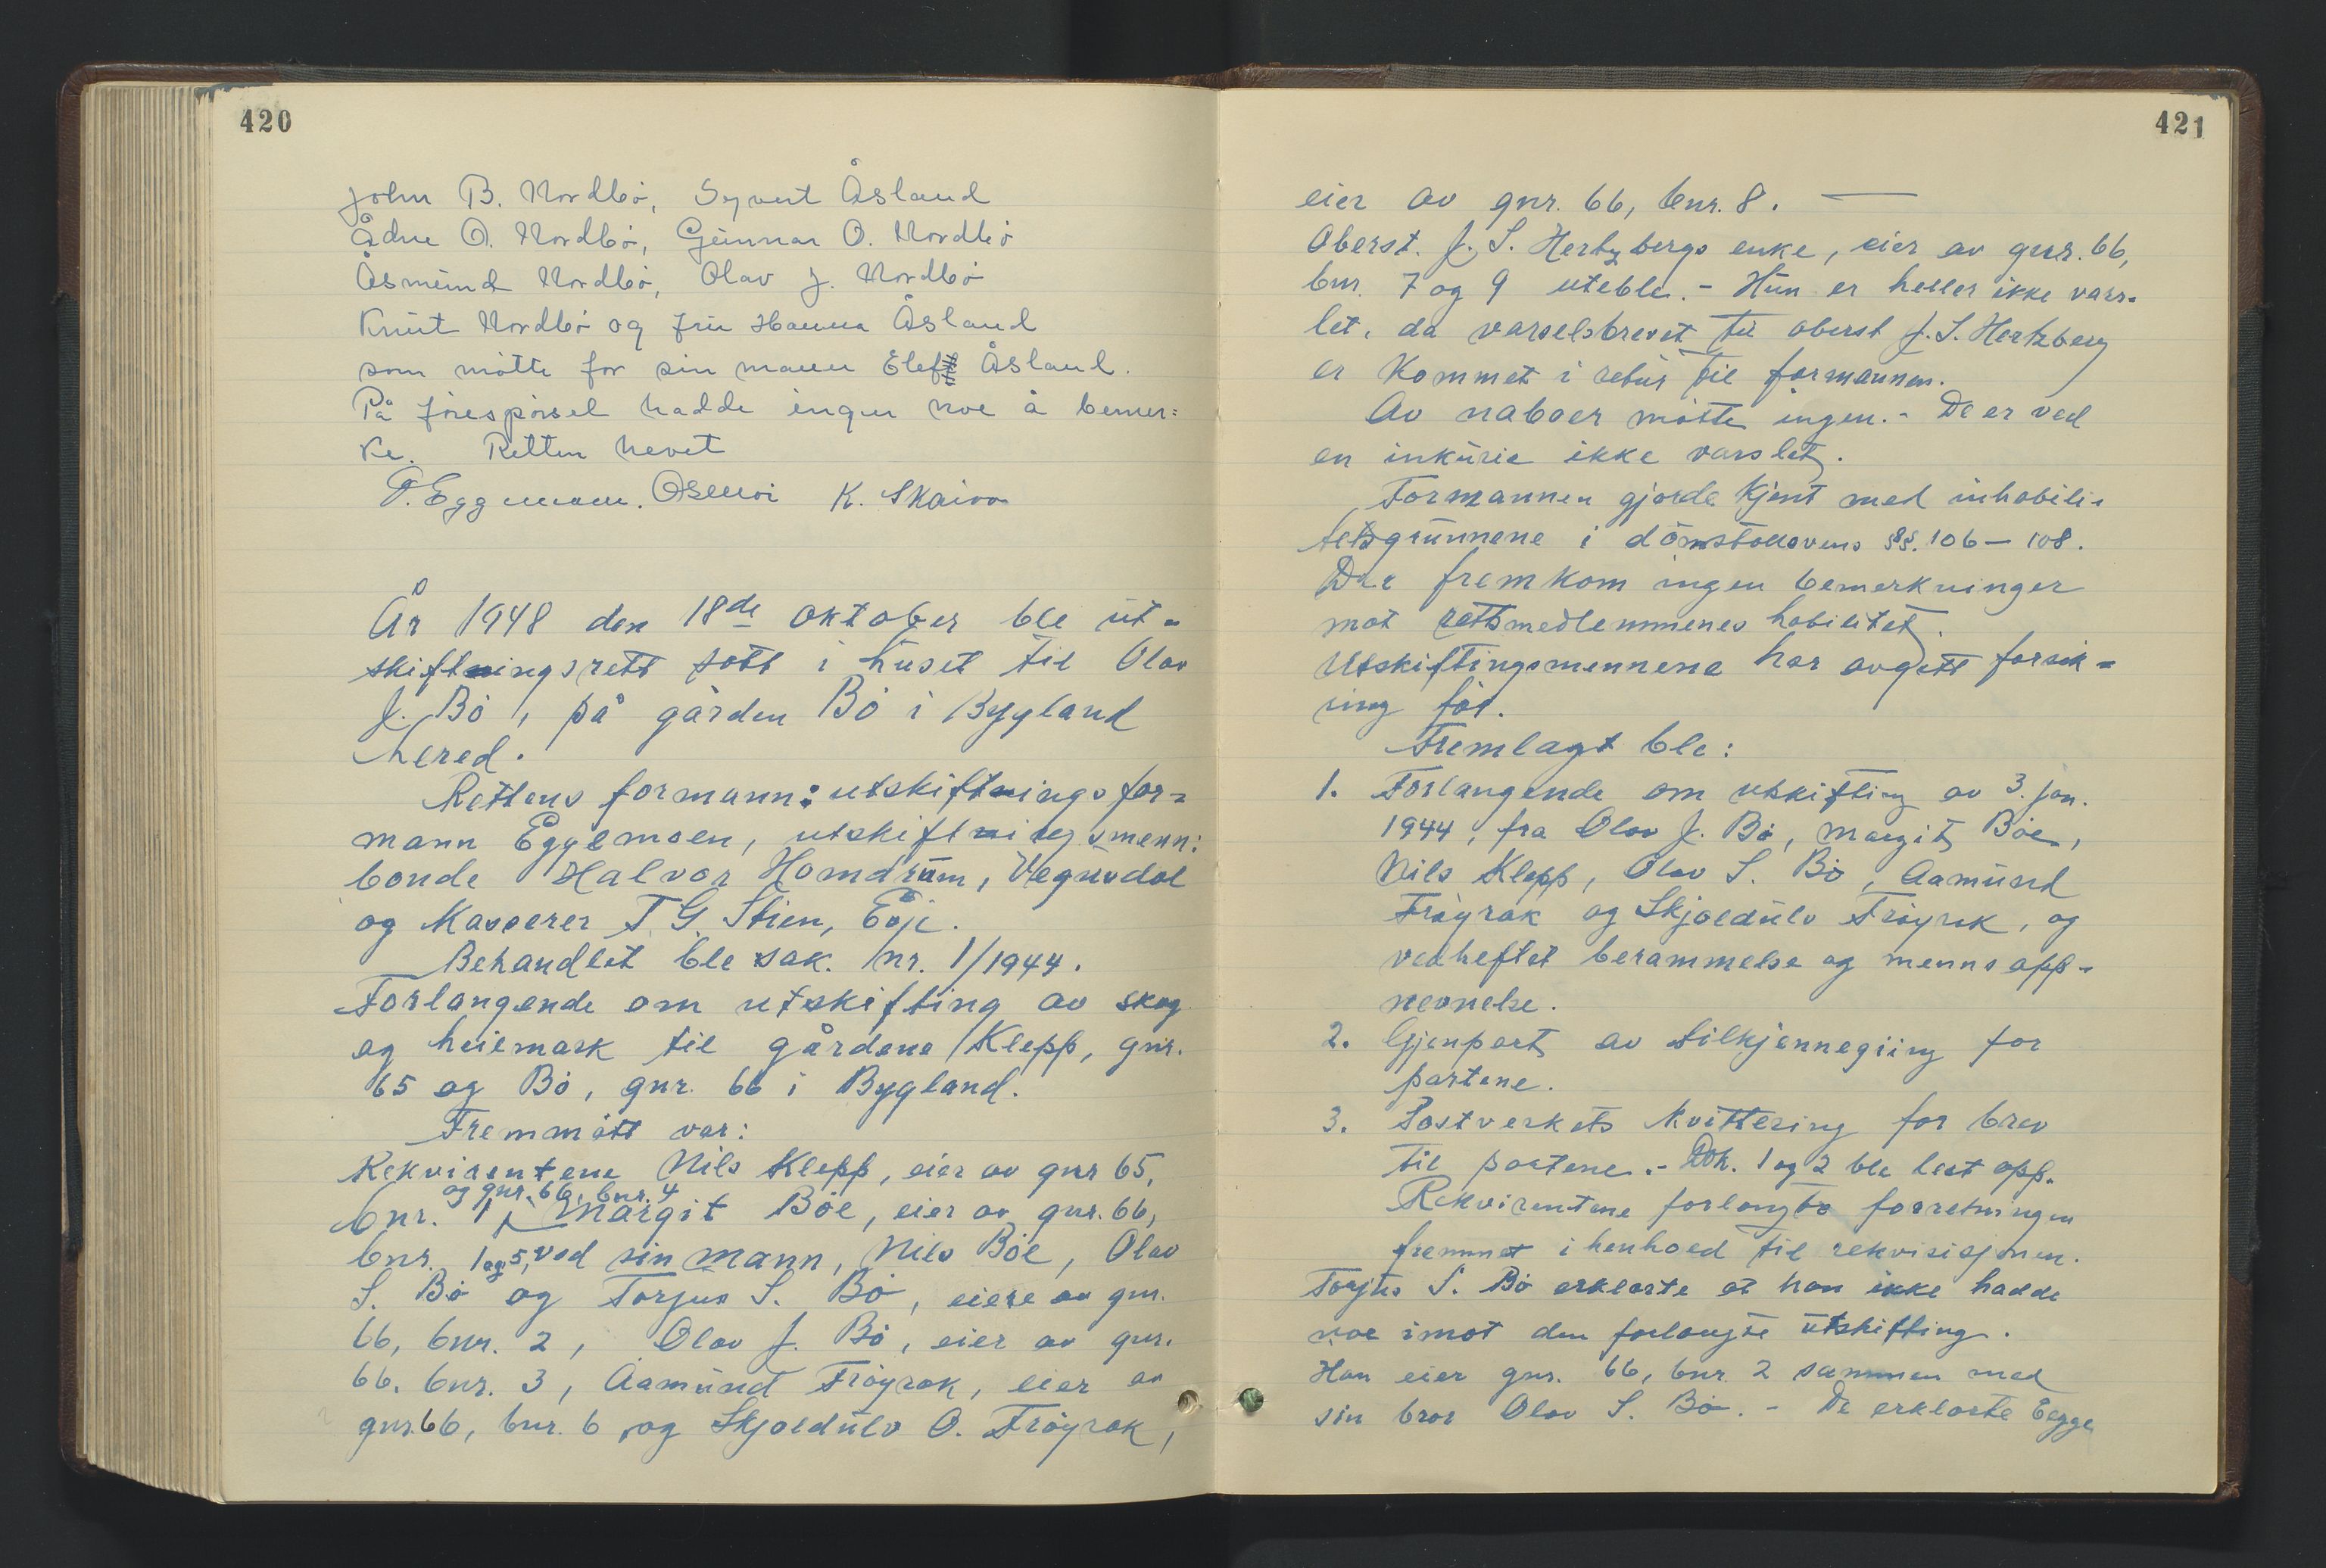 420
John B. Nordbö, Syvert Åsland
Ådne O. Nordbö, Gunnar O. Nordbö
Åsmund Nordbö, Olav J. Nordbö
Knut Nordbö og fru Hanna Åsland
som mötte for sin mann Elef Åsland.
På förespörsel hadde ingen noe å bemer=
ke. Retten hevet
T. Eggemoen. Osmoi K. Skaiaa
År 1948 den 18de oktober ble ut-
skiftningsrett satt i huset til Olav
J. Bö, på gården Bö i Bygland
hered.
Rettens formann: utskiftningsfor=
mann Eggemoen, utskiftningsmenn:
bonde Halvor Homdrum, Vegusdal
og Kasserer T. G. Stien, Evje.
Behandlet ble sak. nr. 1/1944.
Forlangende om utskifting av skog
og heiemark til gårdene Klepp, gnr.
65 og Bö, gnr. 66 i Bygland.
Fremmött var:
Rekvirentene Nils Klepp, eier av gnr 65,
og gnr. 66, bnr. 4
bnr. 1, Margit Böe, eier av gnr. 66,
bnr. 1 og 5, ved sin mann, Nils Böe, Olav
S. Bö og Torjus S. Bö, eiere av gnr.
66, bnr. 2, Olav J. Bö, eier av gnr.
66, bnr. 3, Aamund Fröyrak, eier av
gnr. 66, bnr. 6 og Skjoldulv O. Fröyrak,
421
eier av gnr. 66, bnr. 8. —
Oberst. J. S. Hertzbergs enke, eier av gnr. 66,
bnr. 7 og 9 uteble. - Hun er heller ikke vars-
let, da varselsbrevet til oberst J. S. Hertzberg
er kommet i retur til formannen.
Av naboer mötte ingen. - De er ved
en inkurie ikke varslet.
Formannen gjorde kjent med inhabili-
tetsgrunnene i domstollovens §§. 106 - 108.
Der fremkom ingen bemerkninger
mot rettsmedlemmenes habilitet.
Utskiftingsmennene har avgitt forsik=
ring för.
Fremlagt ble:
1. Forlangende om utskifting av 3. jan.
1944, fra Olav J. Bö, Margit Böe,
Nils Klepp, Olav S. Bö, Aamund
Fröyrak og Skjoldulv Fröyrak, og
vedheftet berammelse og mennsopp-
nevnelse.
2. Gjenpart av tilkjennegiing for
partene.
3. Postverkets kvittering for brev
til partene. - Dok. 1 og 2 ble lest opp.
Rekvirentene forlangte forretningen
fremmet i henhold til rekvisisjonen.
Torjus S. Bö erklærte at han ikke hadde
noe imot den forlangte utskifting.
Han eier gnr. 66, bnr. 2 sammen med
sin bror Olav S. Bö. - De erklærte begge